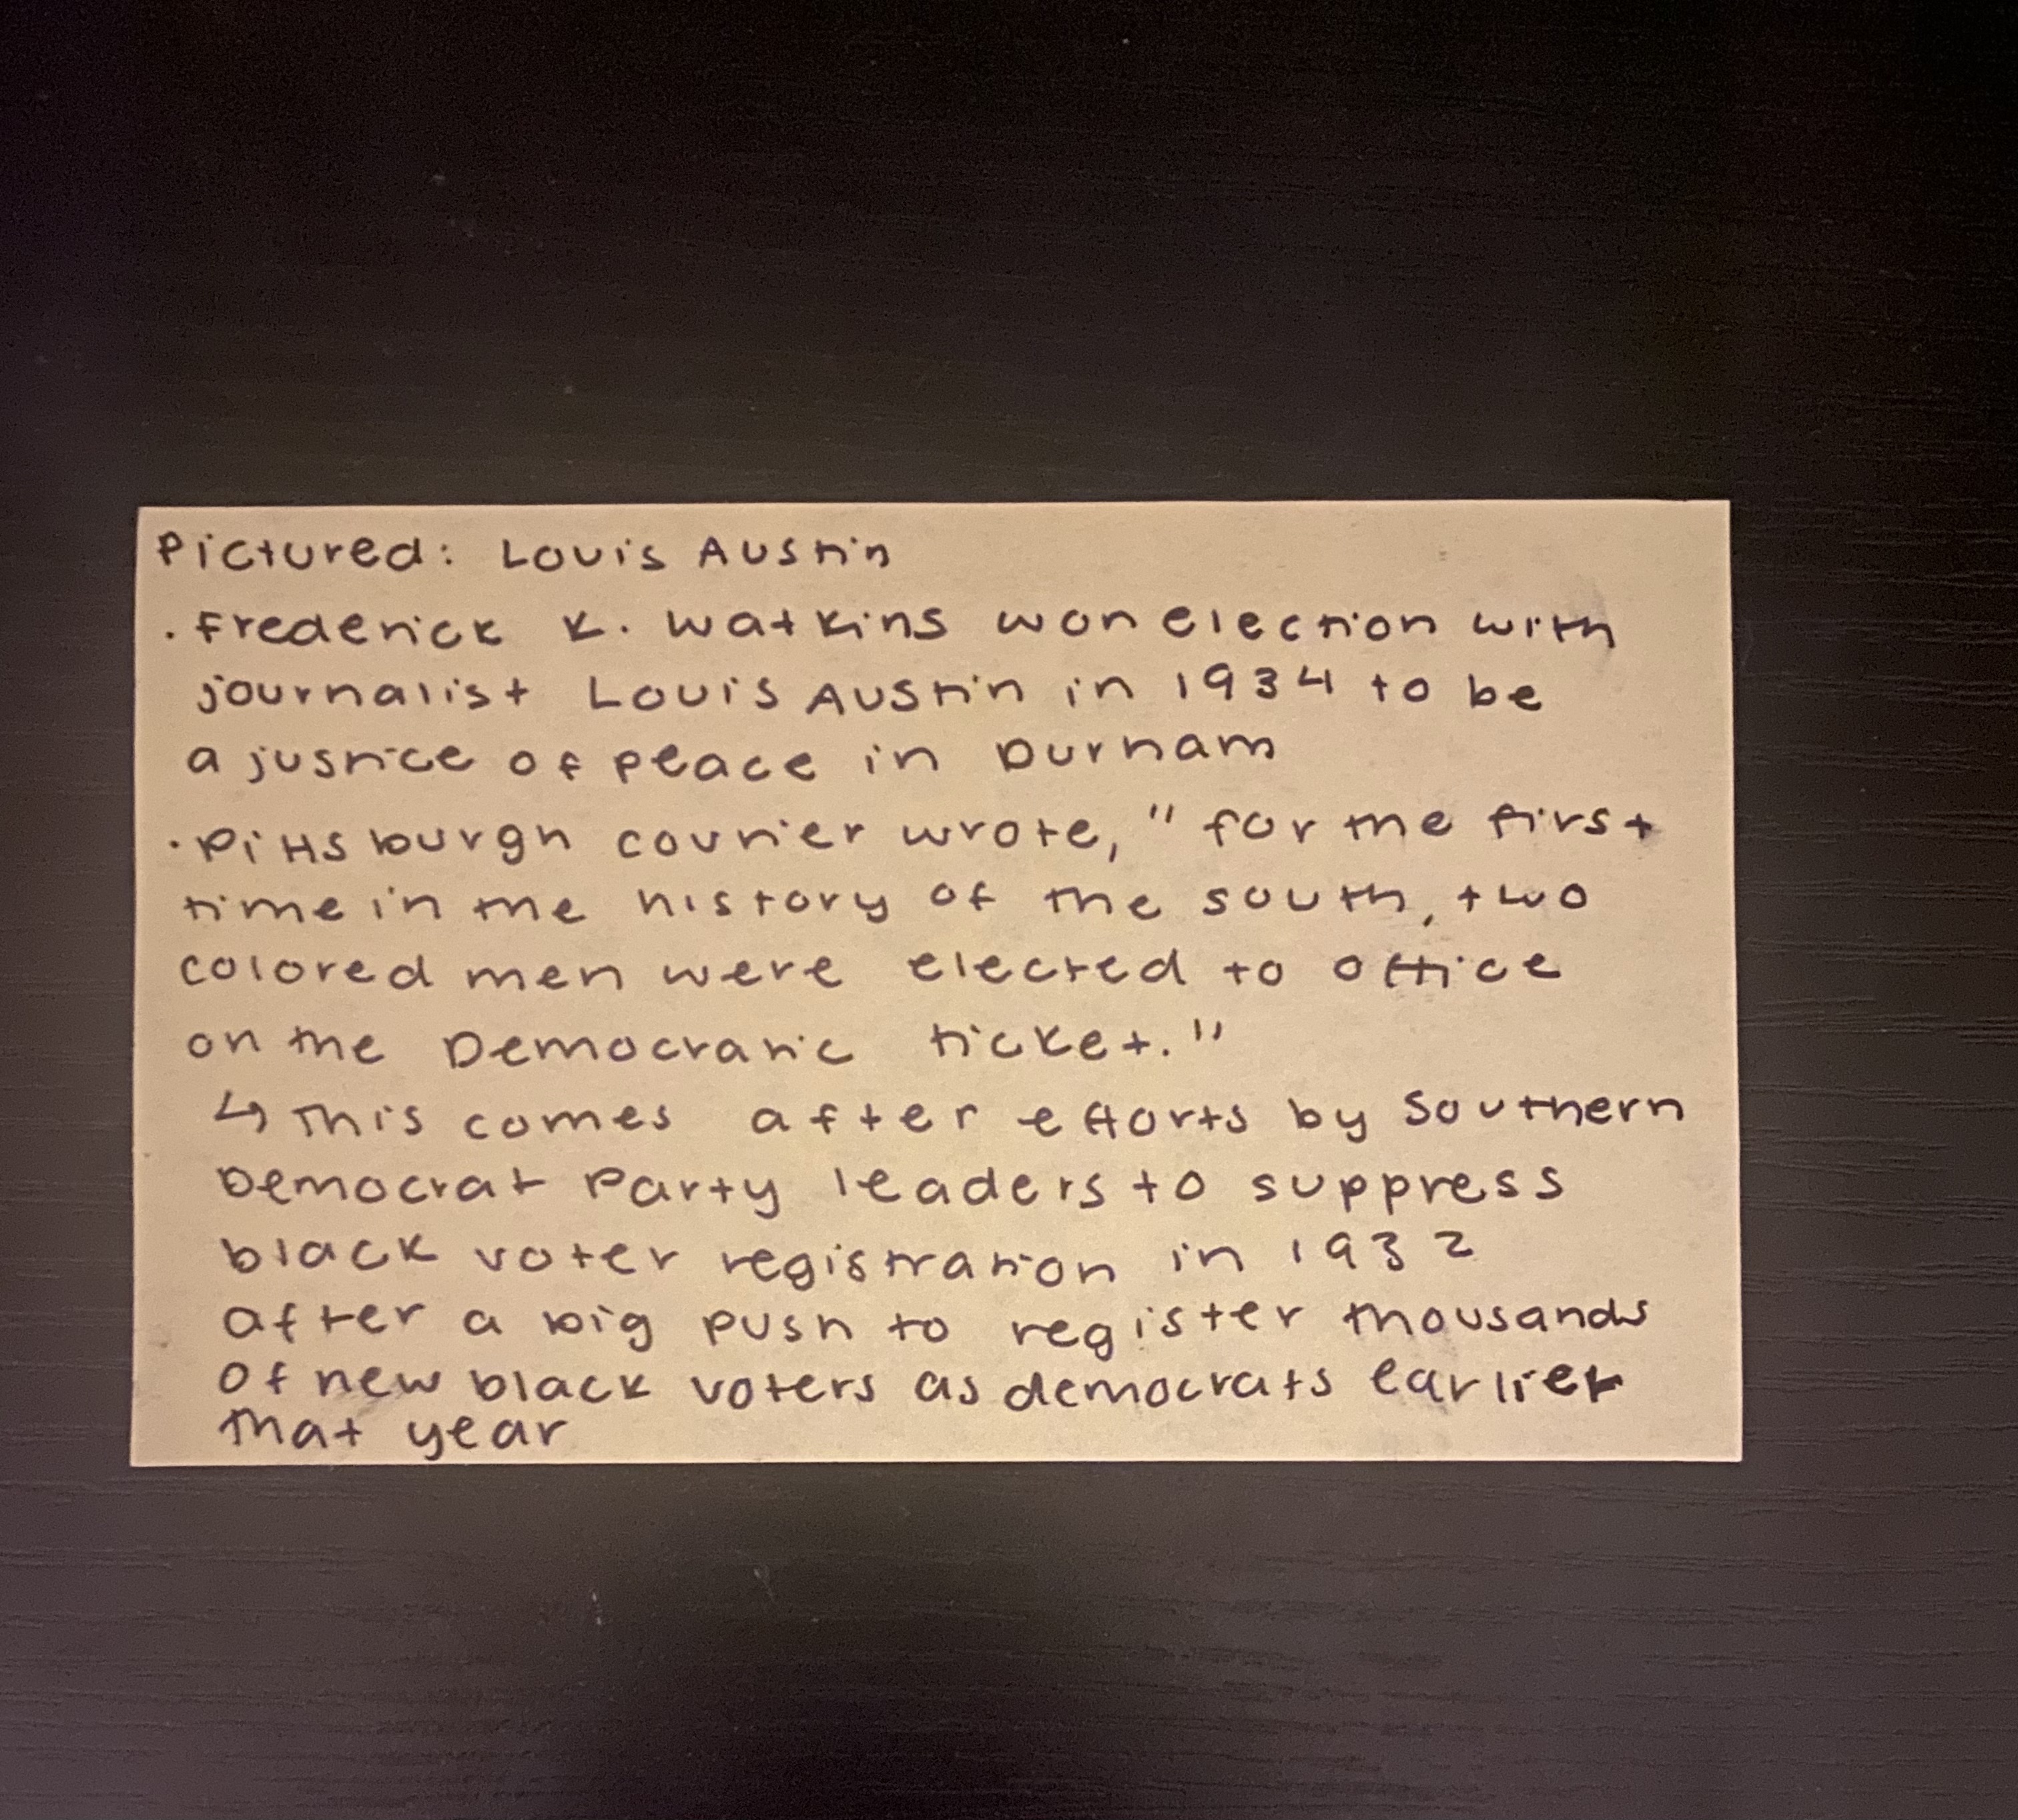 Pictured: Louis Austin
· Frederick K. Watkins won election with
journalist Louis Austin in 1934 to be
a justice of peace in Durham
· Pittsburgh courier wrote, "for the first
time in the history of the south, two
colored men were elected to office
on the Democratic ticket."
↳ This comes after efforts by Southern
Democrat Party leaders to suppress
black voter registration in 1932
after a big push to register thousands
of new black voters as democrats earlier
that year